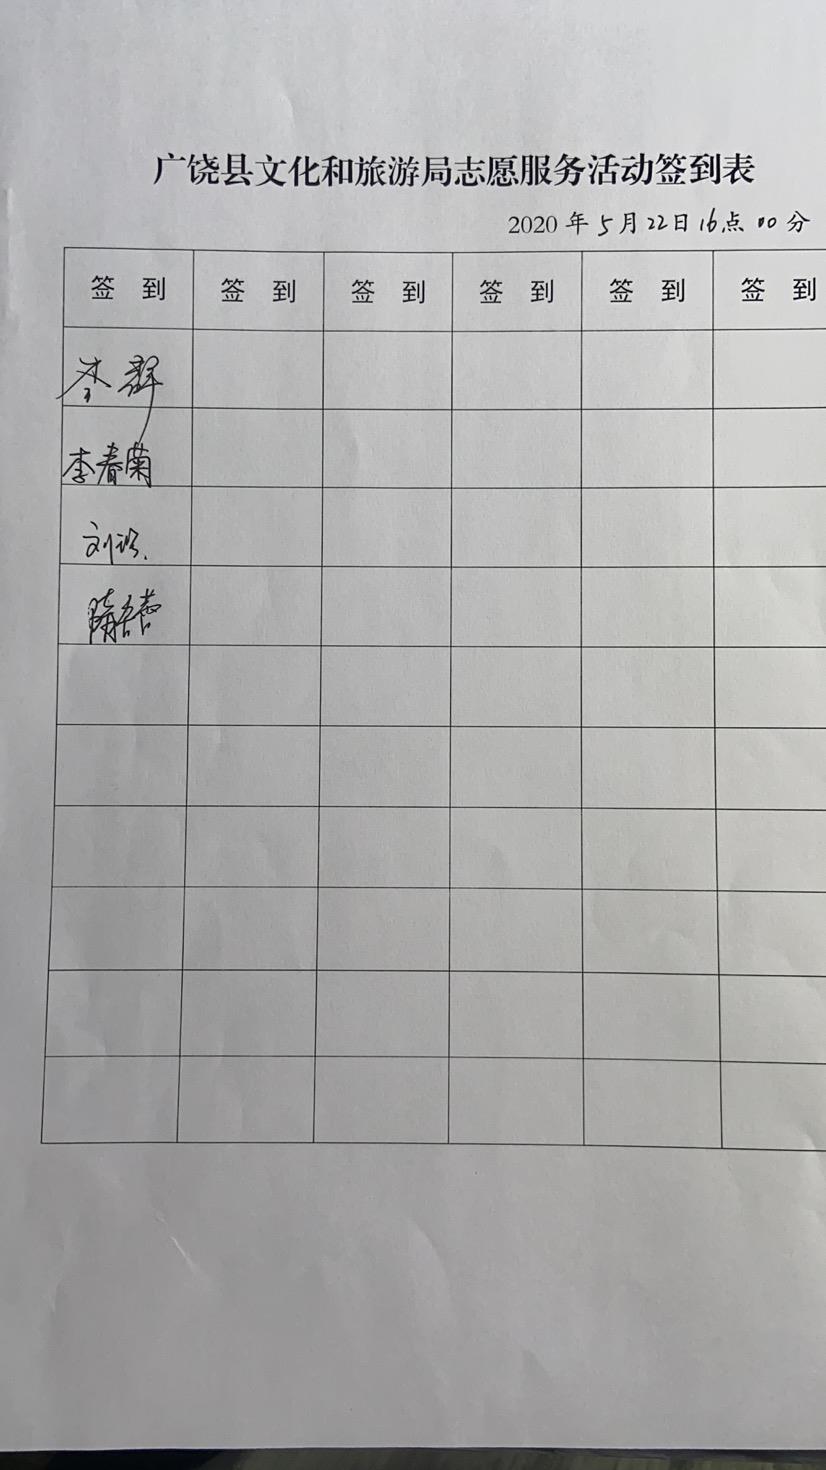 广饶县文化和旅游局志愿服务活动签到表
2020 年 5 月 22 日 16 点 00 分
签 到 签 到 签 到 签 到 签 到 签 到
李群
李春菊
刘
隋